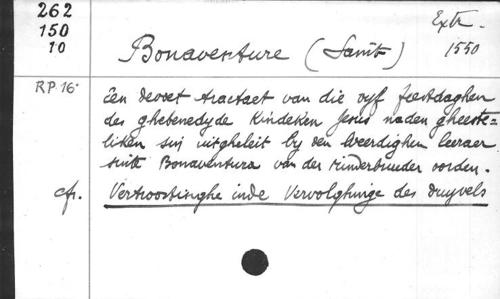 262
150
10
Extr.
1550
Bonaventure (Saint)
RP 16·
Een devoet tractaet van die vyf feestdaghen
des ghebenedyde Kindeken Jesus naden gheeste=
liken sin uitgheleit by den Eeerdighen leeraer
sinte Bonaventura van der minderbrueder oorden.
cfr. Vertroostinghe inde Vervolghinge des duyvels